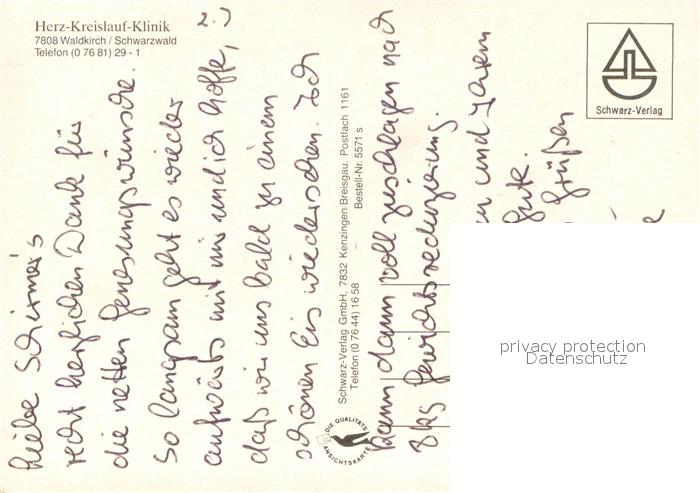 Herz-Kreislauf-Klinik
7808 Waldkirch / Schwarzwald
Telefon (0 76 81) 29 - 1
Schwarz-Verlag
Liebe Schirmer's
recht herzlichen Dank für
die netten Genesungswünsche.
So langsam geht es wieder
aufwärts mit mir und ich hoffe,
daß wir uns bald zu einem
schönen Eis wiedersehen. Ich
kann dann voll zuschlagen nach
8kg Gewichtsreduzierung.
en und
Gute.
Grüßen
Schwarz-Verlag GmbH, 7832 Kenzingen Breisgau, Postfach 1161
Telefon (0 76 44) 16 58 Bestell-Nr. 5571 s
DIE QUALITÄTS
ANSICHTSKARTE
privacy protection
Datenschutz